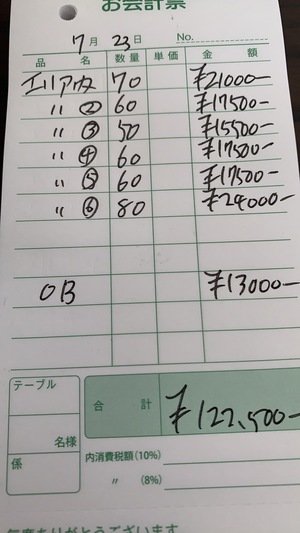 お会計票
7月 23日 No.
品名 数量 単価 金額
70 ¥21000-
〃 ② 60 ¥17500-
〃 ③ 50 ¥15500-
〃 ④ 60 ¥17500-
〃 ⑤ 60 ¥17500-
〃 ⑥ 80 ¥24000-
OB ¥13000-
テーブル
名様
係
合計 ¥122,500-
内消費税額(10%)
〃 (8%)
毎度ありがとうございます